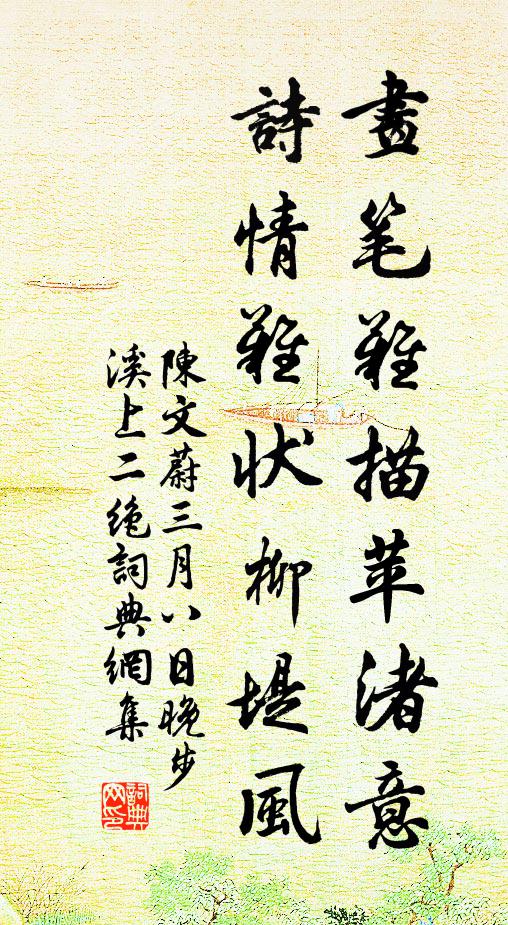 畫笔難描苹渚意
詩情難状柳堤風
陳文蔚三月八日晚步
溪上二绝詞典網集
詞典
网印